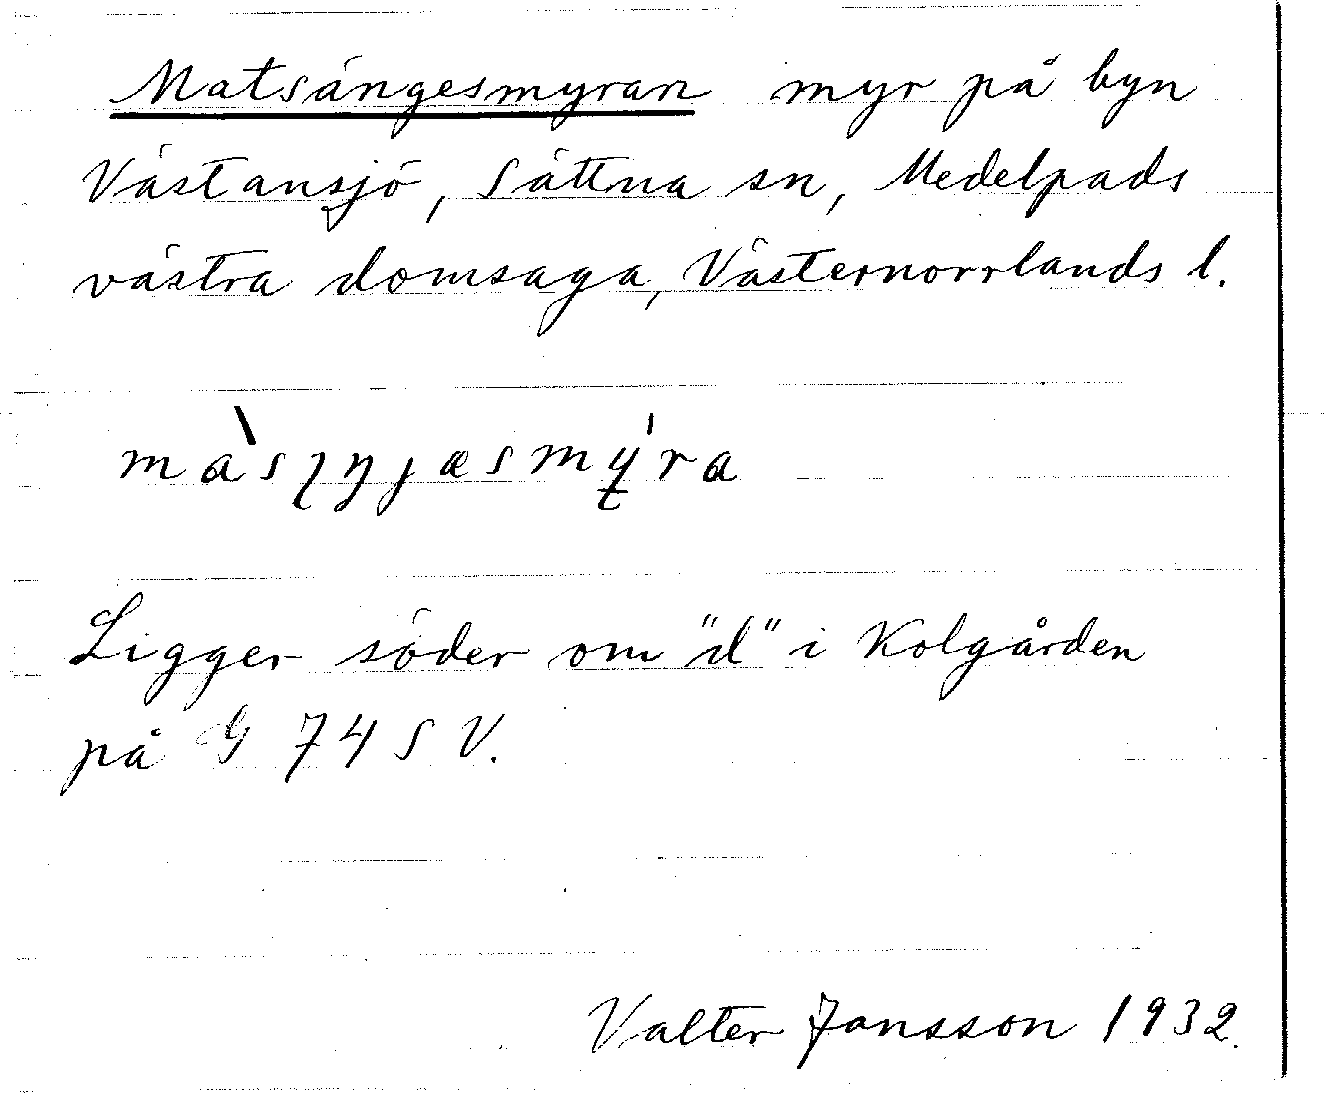 Matsängesmyran myr på byn
Västansjö, Sättna sn, Medelpads
västra domsaga, Västernorrlands l.
Ligger söder om "d" i Kolgården
på G 74 S V.
Valter Jansson 1932.